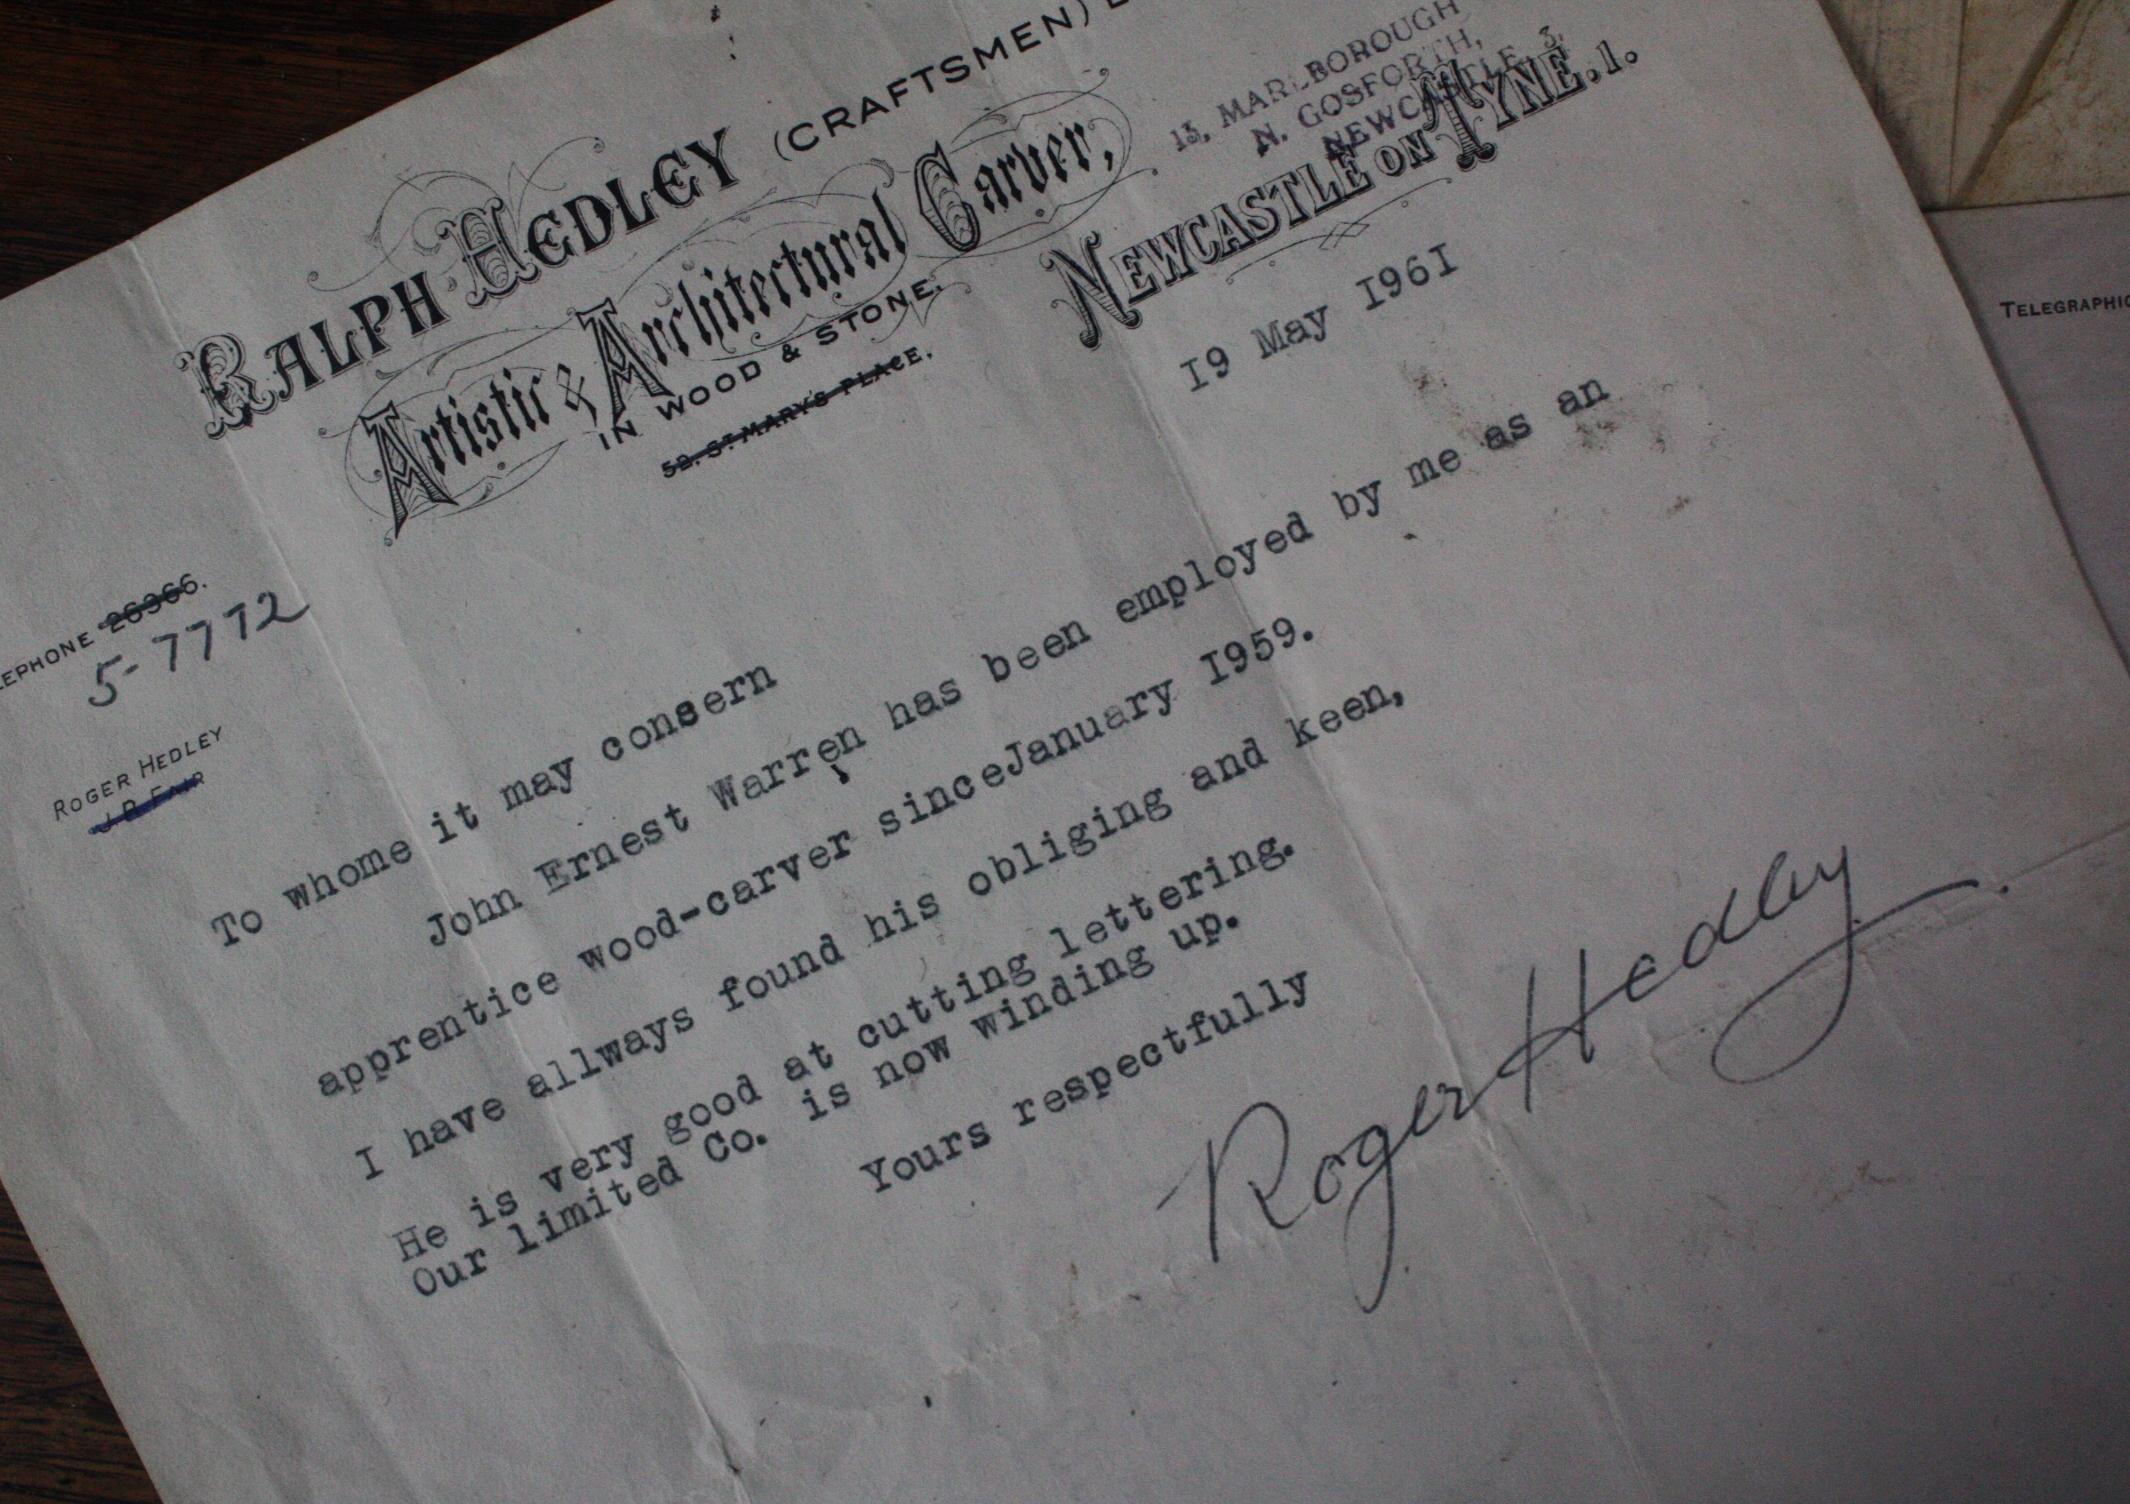 RALPH HEDLEY (CRAFTSMEN)
Artistic & Architectural Carver,
IN WOOD & STONE.
52. ST MARY'S PLACE.
13, MARLBOROUGH
N. GOSFORTH,
NEWCASTLE, 3.
NEWCASTLE ON TYNE. 1.
19 May 1961
LEPHONE 26366.
5-7772
ROGER HEDLEY
J. R. FAIR
To whome it may consern
John Ernest Warren has been employed by me as an
apprentice wood-carver sinceJanuary 1959.
I have allways found his obliging and keen,
He is very good at cutting lettering.
Our limited Co. is now winding up.
Yours respectfully
Roger Hedley
TELEGRAPHIC